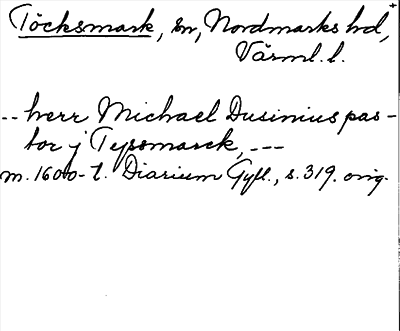 Töcksmark, sn, Nordmarks hd,
Värml. l.
-- herr Michael Dusinius pas-
tor j Tyssmarck, ---
m. 1600-t. Diarium Gyll., s. 319. orig.